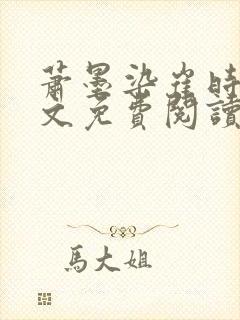 蕭墨染崔時
文免費閱讀
馬大姐